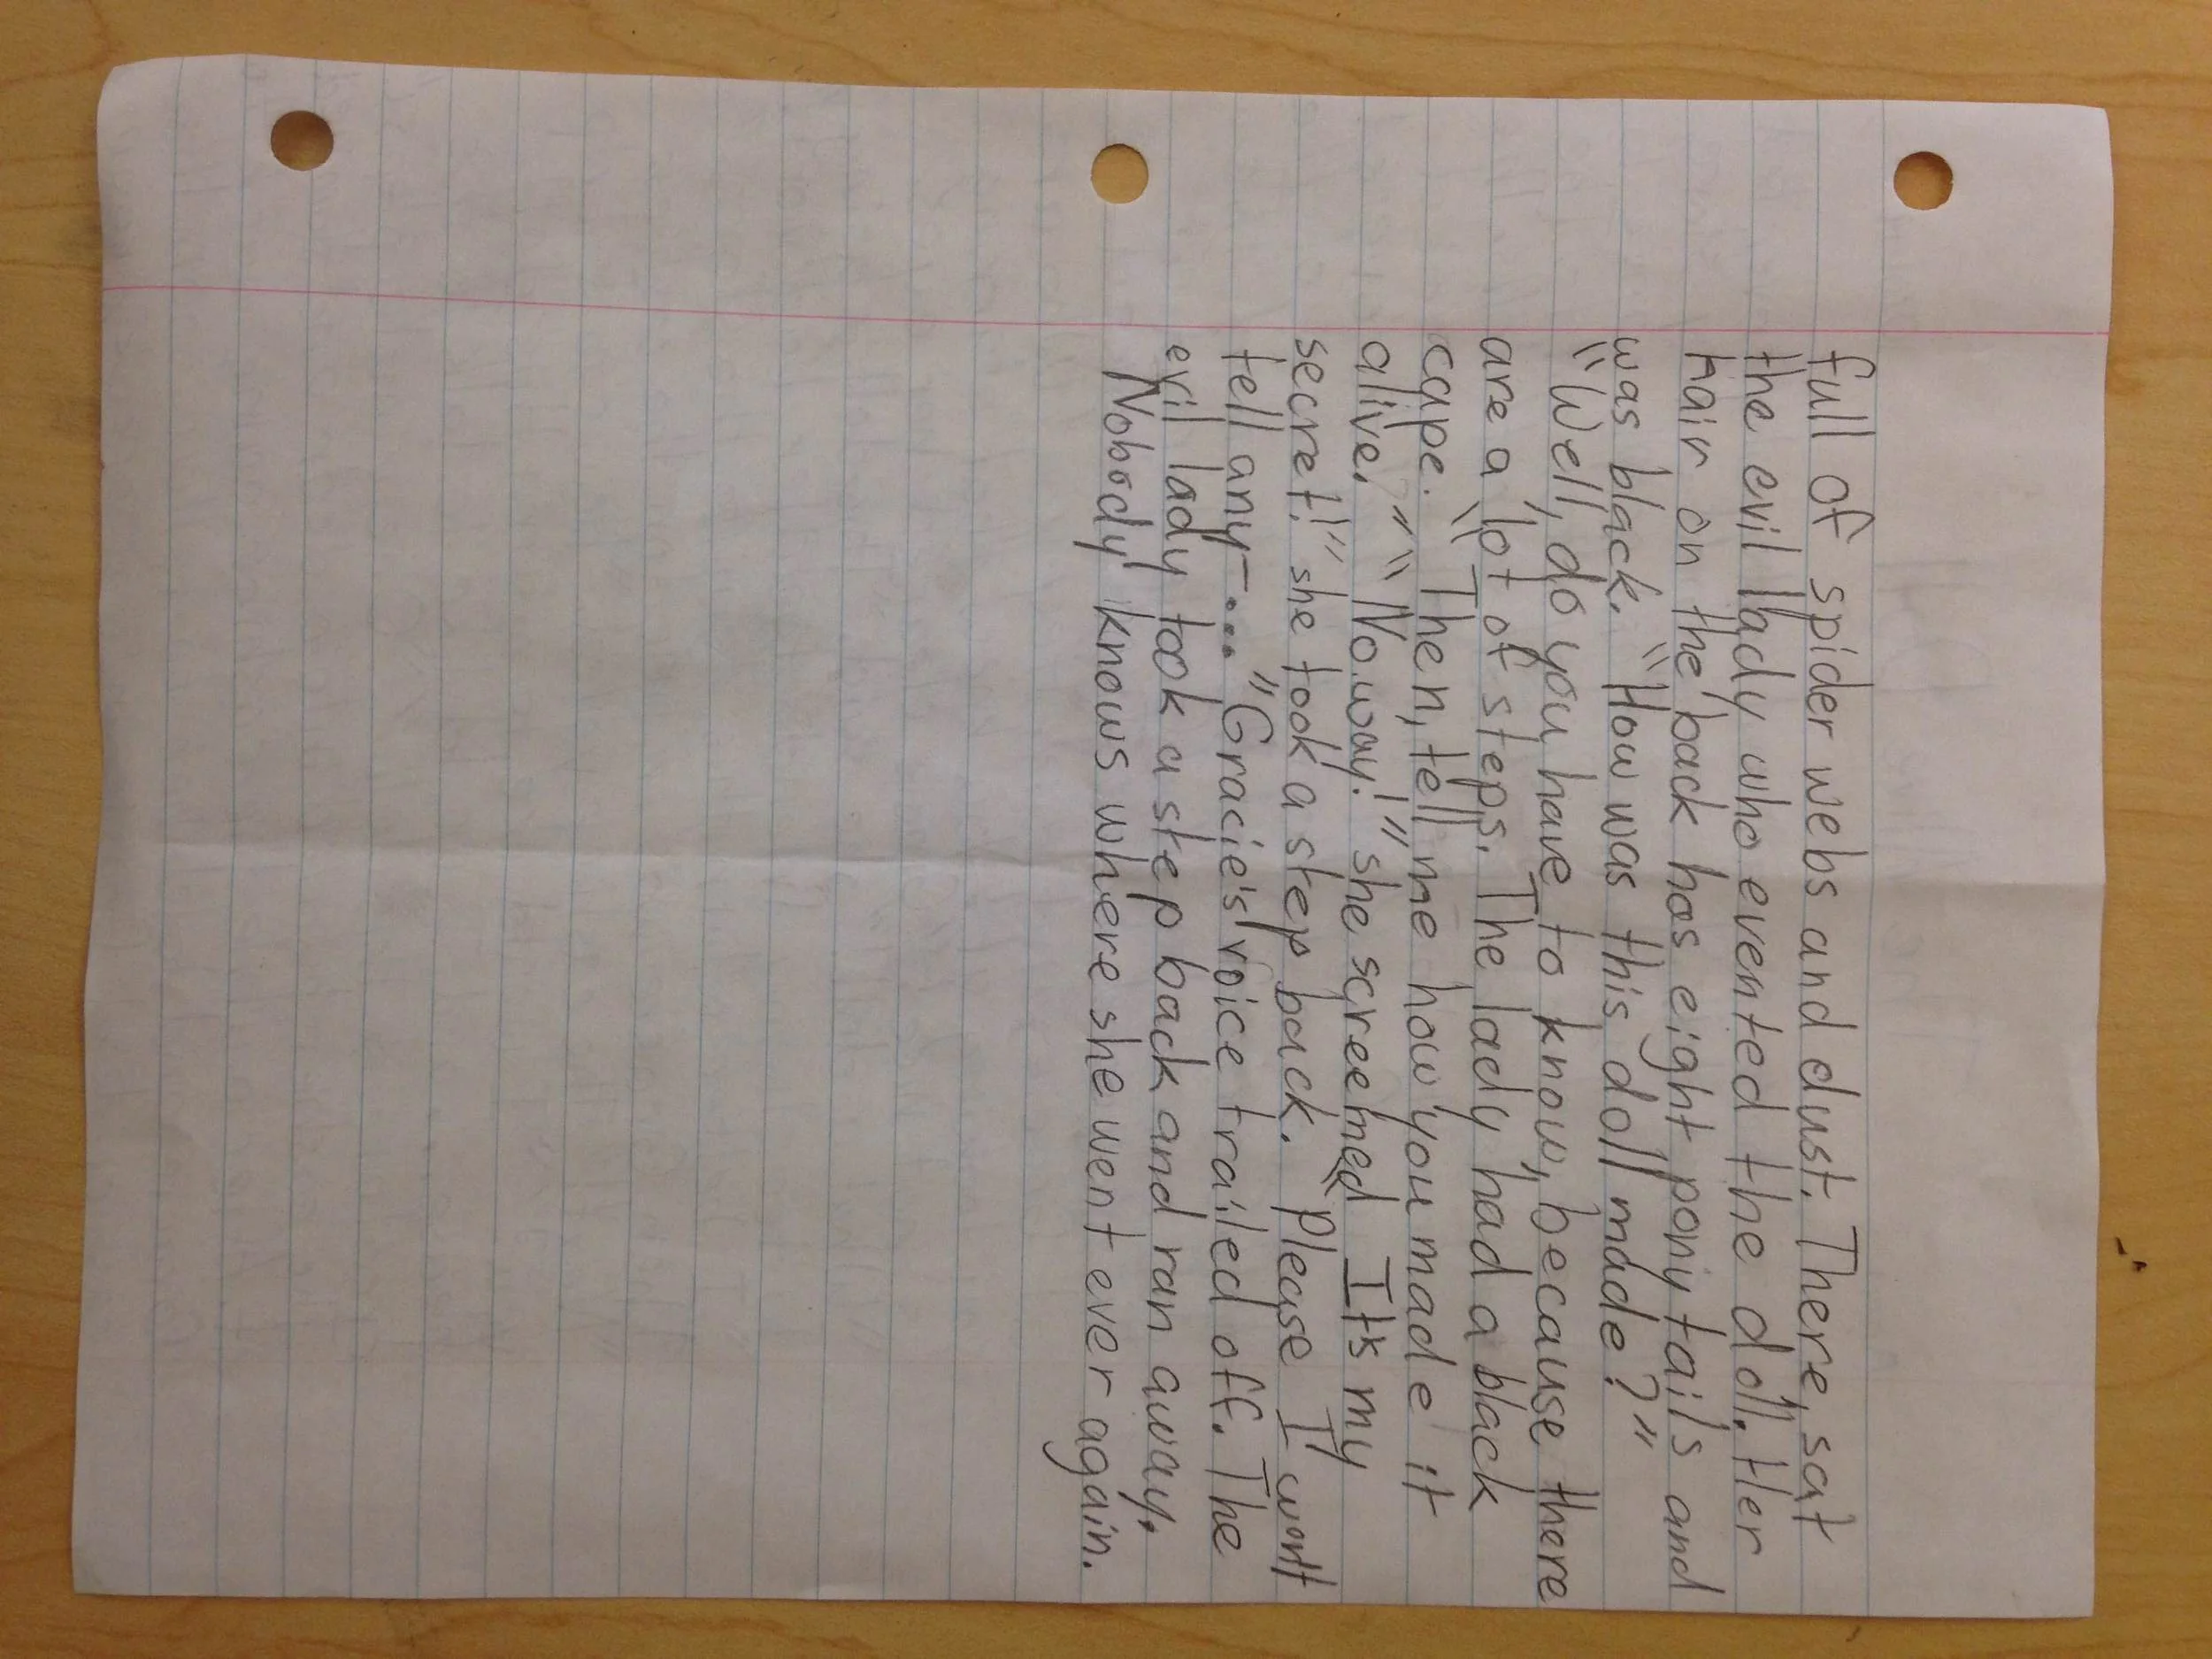 full of spider webs and dust. There, sat
the evil lady who evented the doll. Her
hair on the back has eight pony tails and
was black. "How was this doll made?"
"Well, do you have to know, because there
are a lot of steps. The lady had a black
cape. "Then, tell me how you made it
alive." "No way!" she screemed It's my
secret!" she took a step back. "Please I won't
tell any-..." Gracie's voice trailed off. The
evil lady took a step back and ran away.
Nobody knows where she went ever again.